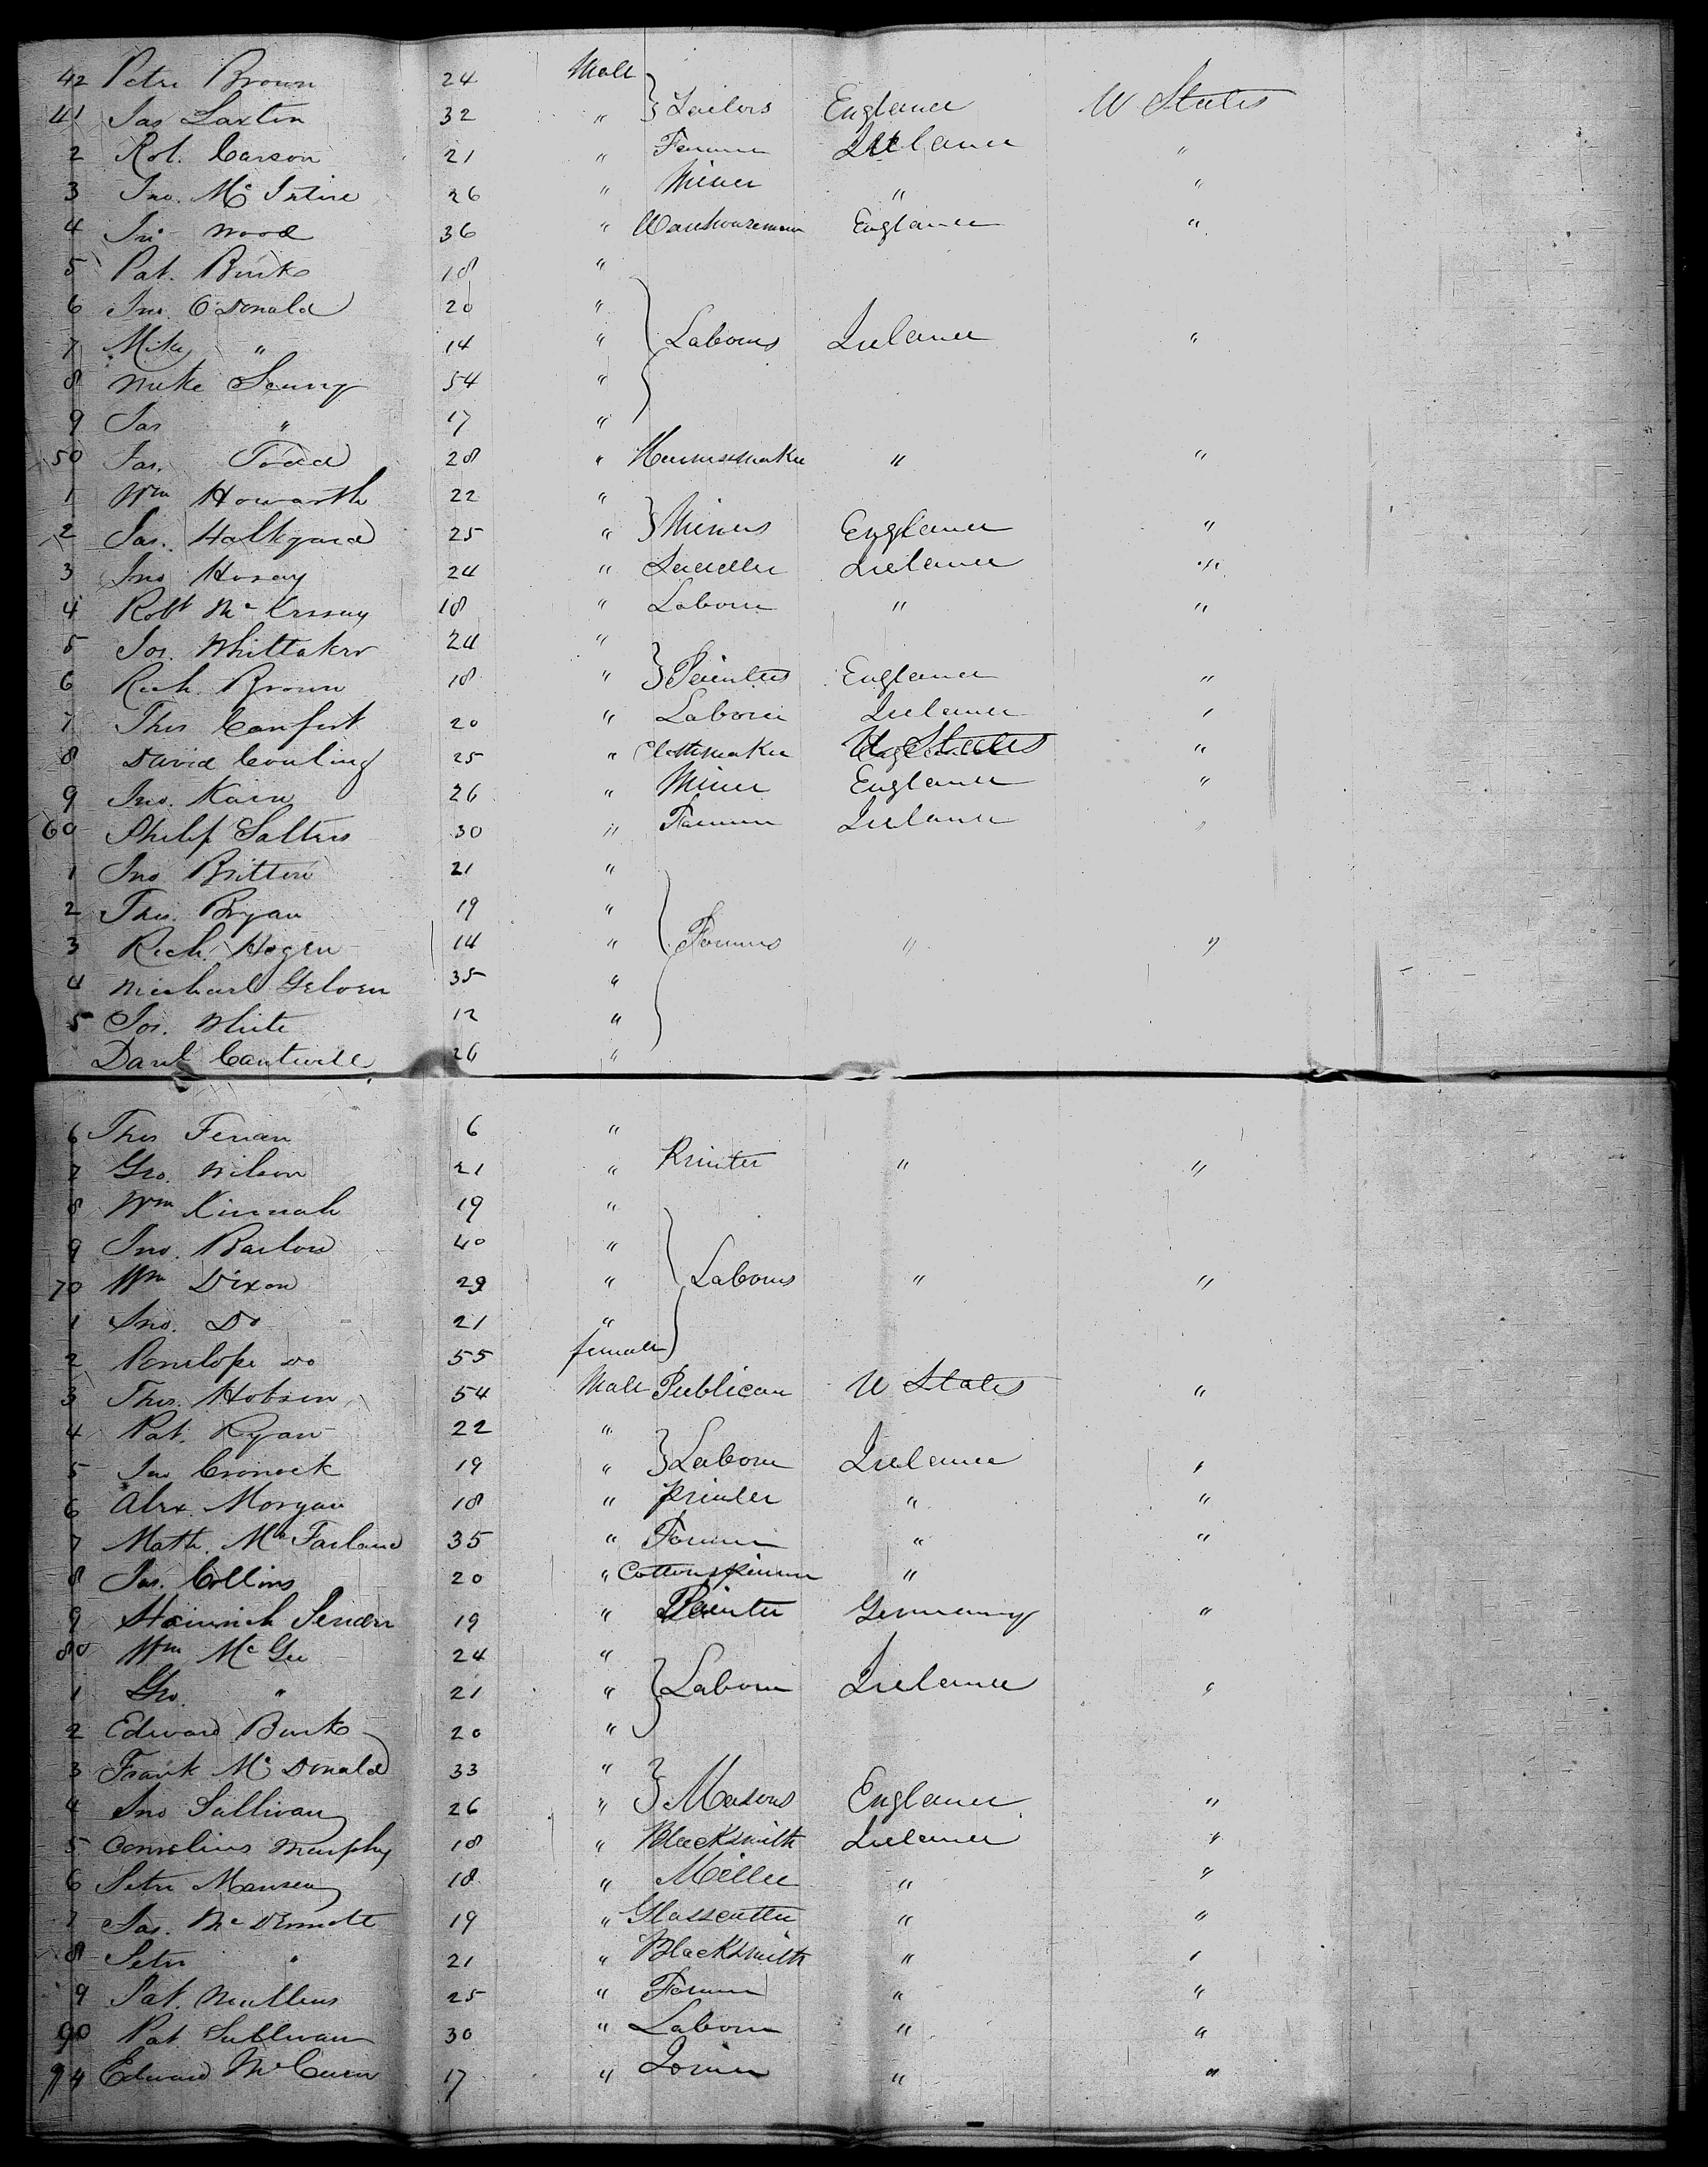 42 Petr Brown 24 Male
41 Jas Laxton 32 " } Tailors England U States
2 Rot. Carson 21 " Farmer Ireland "
3 Jno. Mc Intire 26 " Miner " "
4 Jno Wood 36 " Warehouseman England "
5 Pat. Burke 18 "
6 Jno. O'Donald 20 "
7 Mike " 14 " Laborers Ireland "
8 Mike 54 "
9 Jas " 17 "
50 Jas. Todd 28 " Harnessmaker " "
1 Wm Howarth 22 "
2 Jas. Halkyard 25 " } Miners England "
3 Jno 24 " Saddler Ireland "
4 Robt Mc 18 " Laborer " "
5 Jos. Whittaker 24 "
6 Rich. Brown 18 " } Painters England "
7 Thos 20 " Laborer Ireland "
8 David 25 " Clothmaker U States "
9 Jno. Kain 26 " Miner England "
60 Philip Salters 30 " Farmer Ireland "
1 Jno Britton 21 "
2 Thos. Bryan 19 "
3 Rich. Hogen 14 " Farmers " "
4 Michael 35 "
5 Jos. White 12 "
Danl Cantwell 26 "
6 Thos 6 "
7 Geo. Wilson 21 " Printer " "
8 Wm Kinnah 19 "
9 Jno. Barlow 40 "
70 Wm Dixon 29 " Laborers " "
1 Jno. Do 21 "
2 Penelope Do 55 female
3 Thos. Hobson 54 Male Publican U States "
4 Pat. Ryan 22 "
5 Jas 19 " } Laborer Ireland "
6 Alex. Morgan 18 " Printer " "
7 Math. Mc Farland 35 " Farmer " "
8 Jas. Collins 20 " Cottonspinner "
9 Heinrich 19 " Painter Germany "
80 Wm McGee 24 "
1 Geo. " 21 " } Laborer Ireland "
2 Edward Burke 20 "
3 Frank McDonald 33 "
4 Jno Sullivan 26 " } Masons England "
5 Cornelius Murphy 18 " Blacksmith Ireland "
6 Peter 18 " Miller " "
7 Jas. McDermott 19 " Glasscutter " "
8 Peter " 21 " Blacksmith " "
9 Pat. Mullens 25 " Farmer " "
90 Pat Sullivan 30 " Laborer " "
94 Edward 17 " Joiner " "